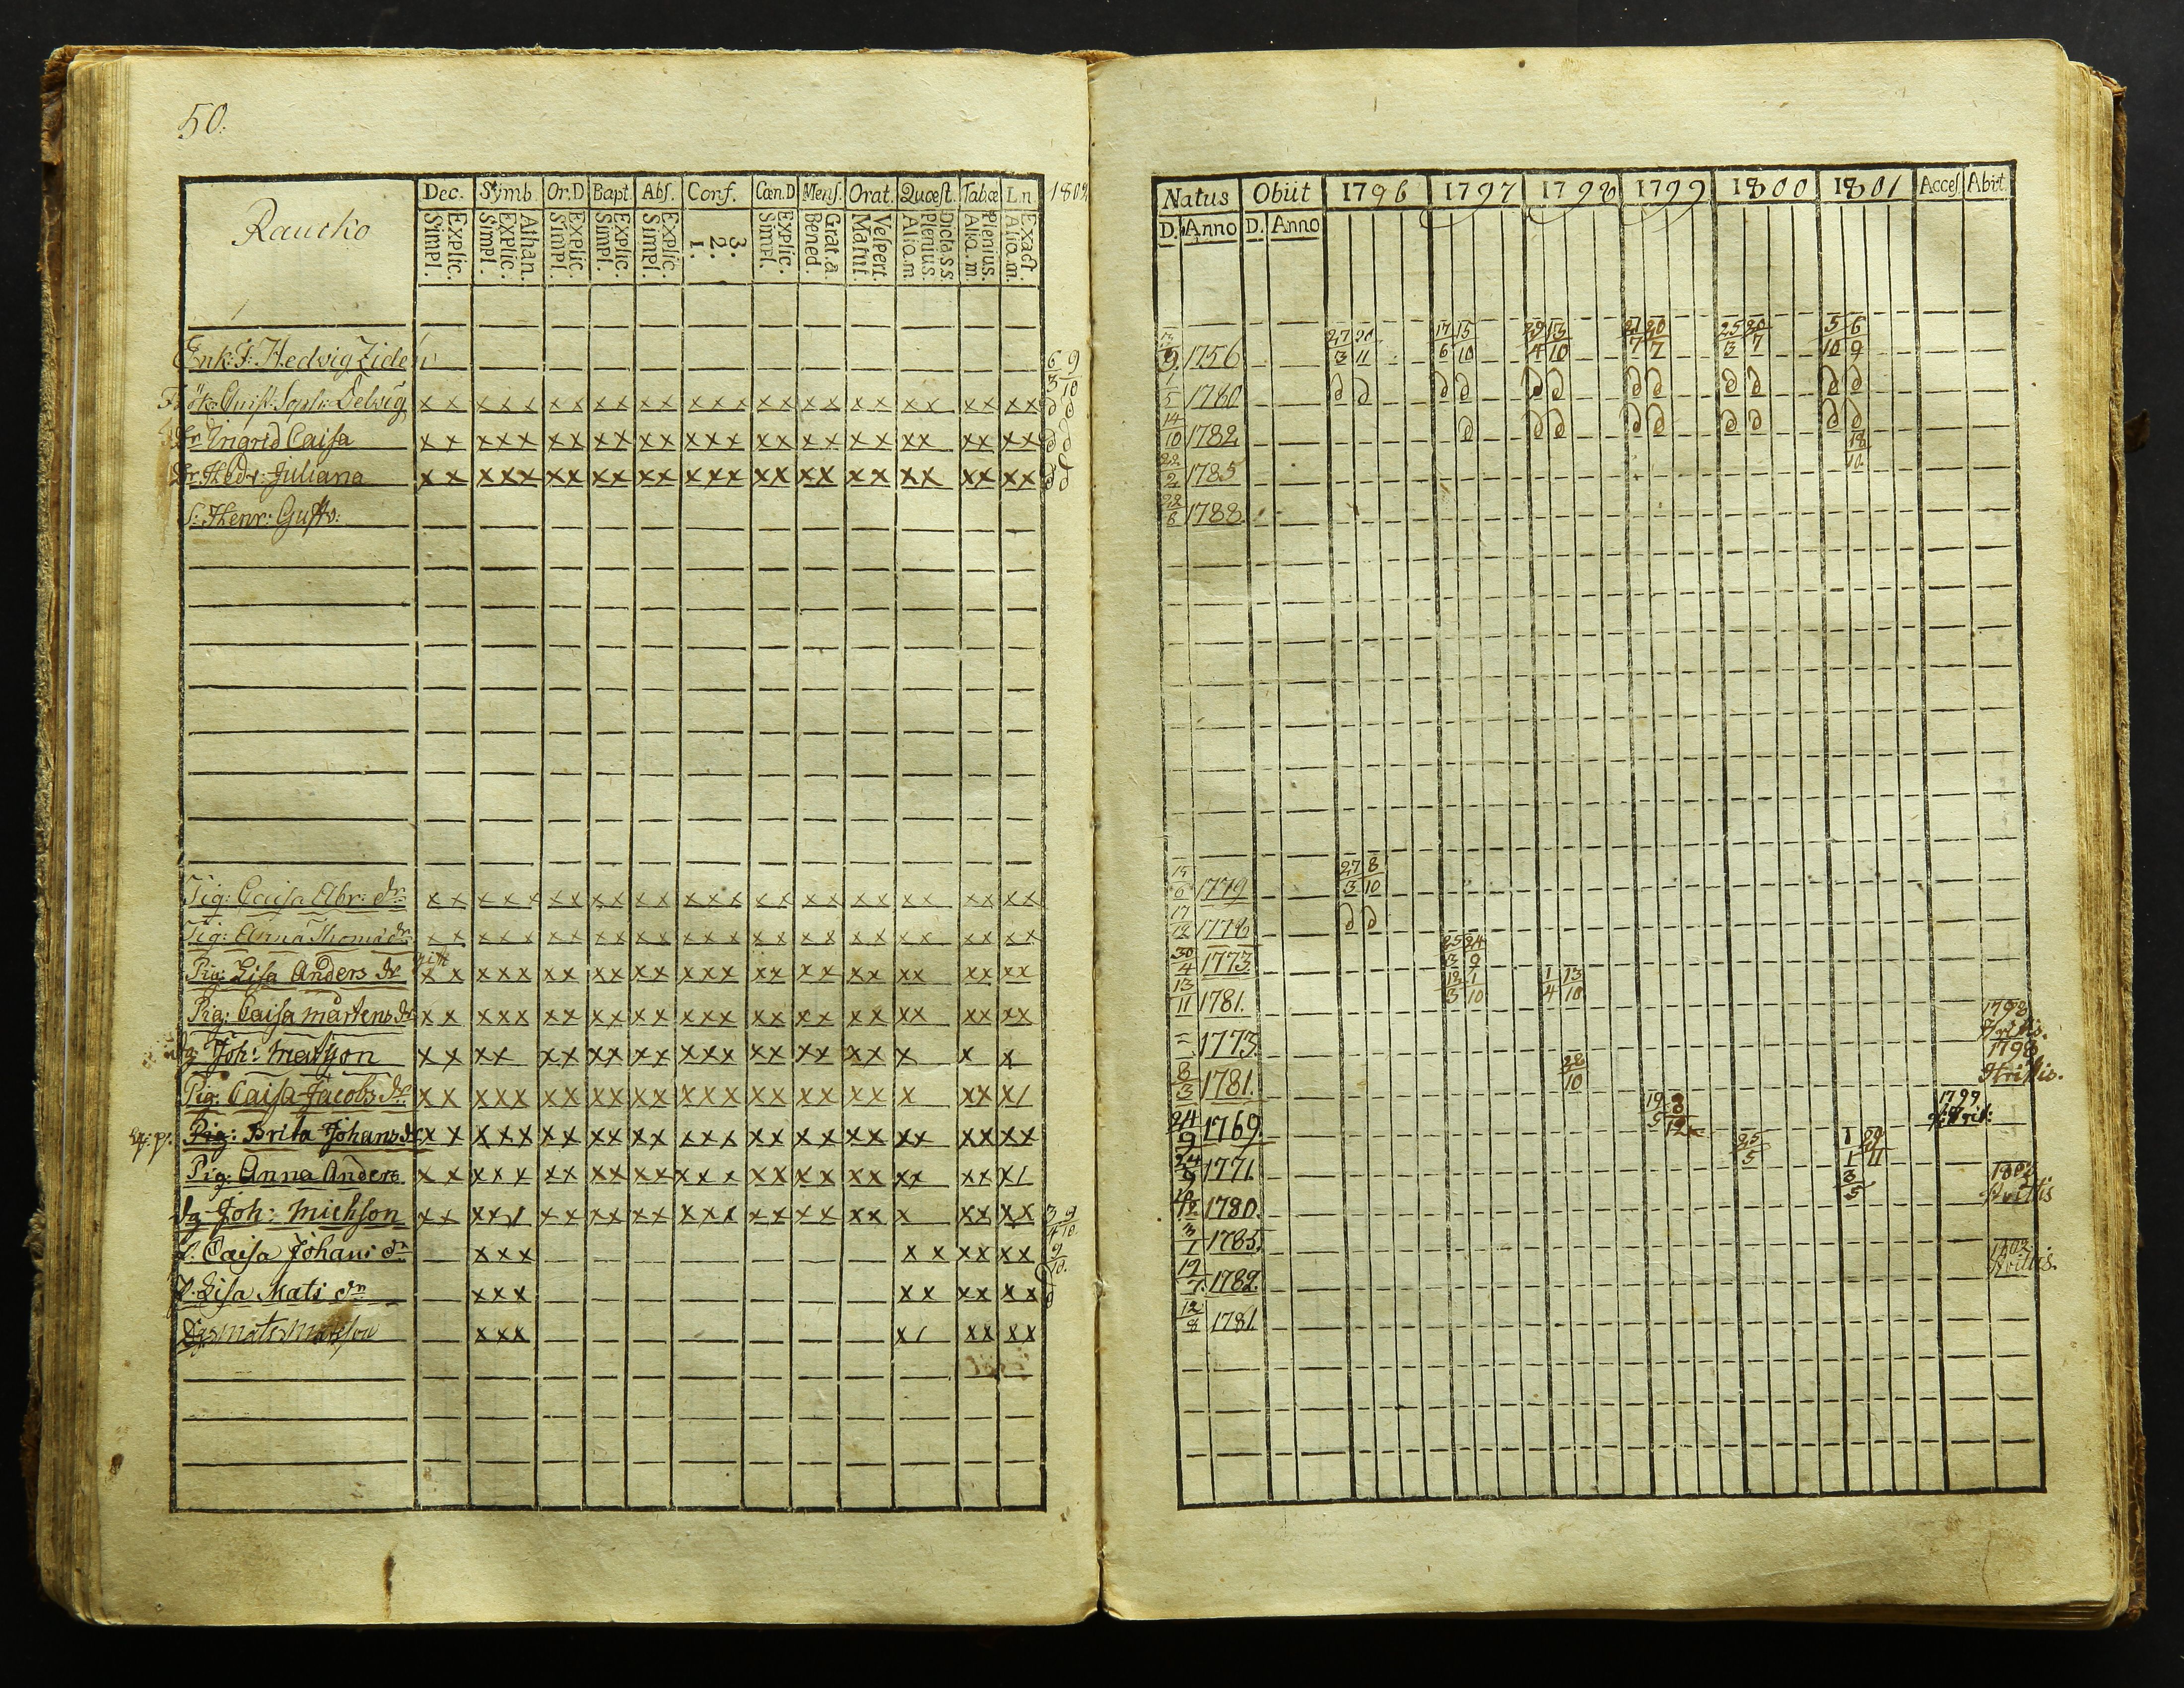 50.
Rautko
Dec. Symb. Or.D Bapt. Abs. Conf. Cœn.D Mens. Orat. Quæst. Tabæ Ln. 1802
Explic. Simpl. Athan. Explic. Simpl. Explic. Simpl. Explic. Simpl. Explic. Simpl. 3. 2. 1. Explic. Simpl. Grat.a. Bened. Vespert. Matut. Dicta ss. Plenius. Aliq.m. Plenius. Aliq.m. Exact. Aliq.m.
Enk: F: Hedvig Ziden 6/3 9/10
Frök: Christ: Soph: Delvig x x x x x x x x x x x x x x x x x x x x x x x x x x d d
Dr Ingrid Caisa x x x x x x x x x x x x x x x x x x x x x x x x x x d d
Dr Hedv: Juliana x x x x x x x x x x x x x x x x x x x x x x x x x x d d
S: Henr: Gust:
Pig: Caisa Abr: dr x x x x x x x x x x x x x x x x x x x x x x x x x x
Pig: Anna Thom: dr x x x x x x x x x x x x x x x x x x x x x x x x x x
Pig: Lisa Anders dr gift x x x x x x x x x x x x x x x x x x x x x x x x x x
Pig: Caisa Mårtens dr x x x x x x x x x x x x x x x x x x x x x x x x x x
Dg Joh: Matsson x x x x x x x x x x x x x x x x x x x x x x x
Pig: Caisa Jacobs dr x x x x x x x x x x x x x x x x x x x x x x x x /
Pig: Brita Johans dr x x x x x x x x x x x x x x x x x x x x x x x x x x
Pig: Anna Anders x x x x x x x x x x x x x x x x x x x x x x x x x /
Dg Joh: Michson x x x x / x x x x x x x x x x x x x x x x x x x x x 3/4 9/10
P. Caisa Johans dr x x x x x x x x x 9/10
P. Lisa Mats dr x x x x x x x x x d
Dg: Mats Matsson x x x x / x x x x
Natus Obiit 1796 1797 1798 1799 1800 1801 Acces. Abit.
D. Anno D. Anno
1756 27/3 20/11 17/6 15/10 29/4 13/10 21/7 20/7 25/3 20/7 5/10 6/9
1/5 1780 d d d d d d d d d d d d
14/10 1782 d d d d d d d d d
22/2 1785 18/10
1788
15/6 1779 27/3 8/10
17/12 1778 d d
30/4 1773 25/3 24/9
13/11 1781. 12/3 1/10 1/4 13/10
= 1773 1798
8/3 1781. 28/10 1798
24/9 1769 19/9 1799
24/9 1771. 25/5 1/1 20/11
1780. 3/5 1802
3/1 1785.
12/7 1782. 1802
12/8 1781